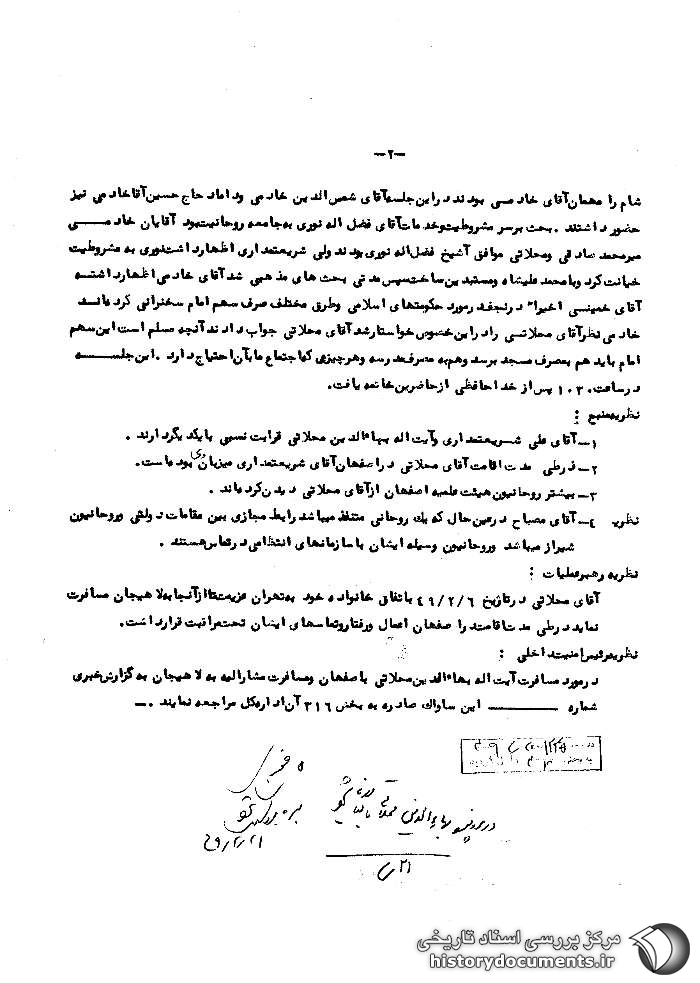 -۲-
شام را مهمان آقای خادمی بودند در این جلسه آقای شمس الدین خادمی وداماد حاج حسین آقاخادمی نیز
حضور داشتند . بحث برسر مشروطیت وخدمات آقای فضل اله نوری به جامعه روحانیت بود آقایان خادمی
میرمحمد صادقی ومحلاتی موافق آشیخ فضل اله نوری بودند ولی شریعتمداری اظهارداشت نوری به مشروطیت
خیانت کرد وبا محمد علیشاه ومستبدین ساخت سپس مدتی بحث های مذهبی شد آقای خادمی اظهارداشت
آقای خمینی اخیرا" در نجف در مورد حکومتهای اسلامی وطرق مختلف صرف سهم امام سخنرانی کرده اند
خادمی نظر آقای محلاتی را در این خصوص خواستار شد آقای محلاتی جواب دادند آنچه مسلم است این سهم
امام باید هم بمصرف مسجد برسد وهم به مصرف مدرسه وهرچیزی که اجتماع ما بآن احتیاج دارد . این جلسه
در ساعت ۱۰۳۰ پس از خداحافظی از حاضرین خاتمه یافت.
نظریه منبع :
۱- آقای علی شریعتمداری وآیت اله بهاءالدین محلاتی قرابت نسبی با یکدیگر دارند .
۲- در طی مدت اقامت آقای محلاتی در اصفهان آقای شریعتمداری میزبان وی بوده است.
۳- بیشتر روحانیون هیئت علمیه اصفهان از آقای محلاتی دیدن کرده اند .
نظریه ۴- آقای مصباح در عین حال که یک روحانی متنفذ میباشد رابط مجازی بین مقامات دولتی وروحانیون
شیراز میباشد وروحانیون وسیله ایشان با سازمانهای انتظامی در تماس هستند .
نظریه رهبرعملیات :
آقای محلاتی در تاریخ ۴۹/۲/۶ باتفاق خانواده خود به تهران عزیمت تا از آنجا به لاهیجان مسافرت
نماید در طی مدت اقامتد را صفهان اعمال ورفتار وتماسهای ایشان تحت مراقبت قرار داشت.
نظریه رئیس امنیت داخلی :
در مورد مسافرت آیت اله بهاءالدین محلاتی باصفهان ومسافرت مشارالیه به لاهیجان به گزارش خبری
شماره ــــــ این ساواک صادره به بخش ۳۱۶ آن اداره کل مراجعه نمایند .-
در پرونده بهاءالدین محلاتی
مرکز بررسی اسناد تاریخی
historydocuments.ir